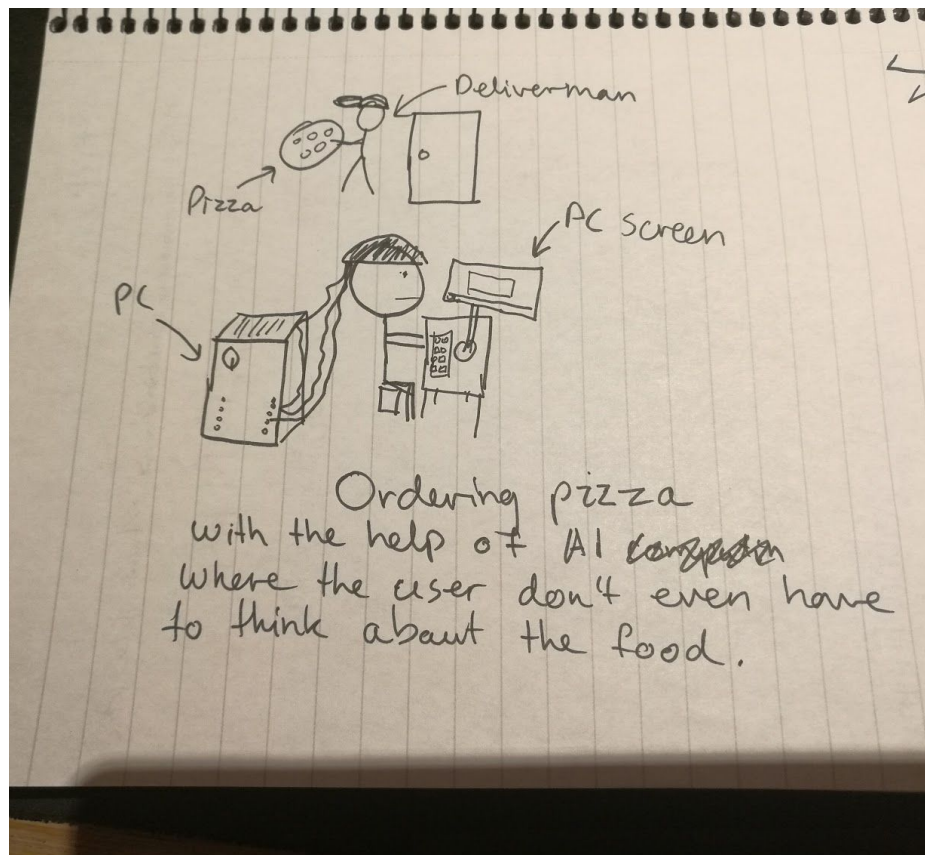 Deliverman
Pizza
PC screen
PC
Ordering pizza
with the help of AI
where the user don't even have
to think about the food.